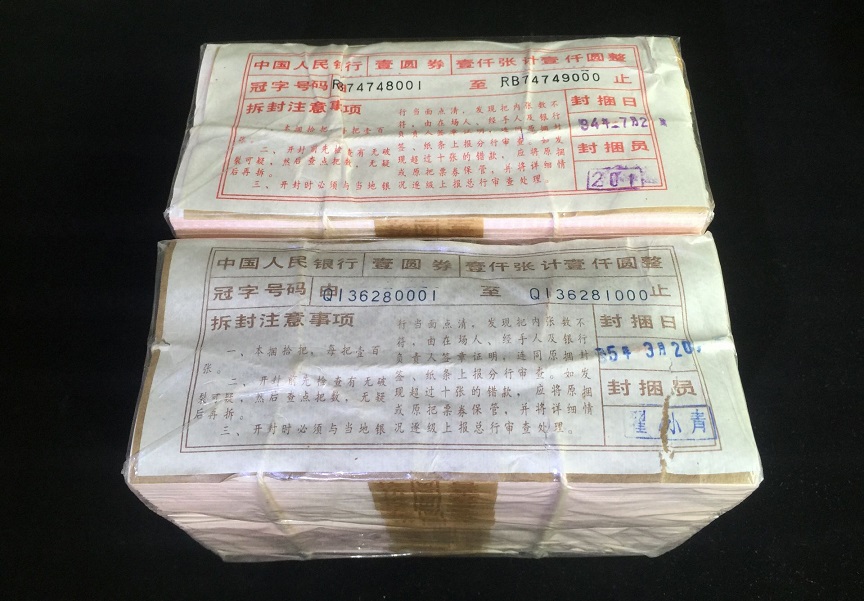 中国人民银行 壹圆券 壹仟张计壹仟圆整
冠字号码 RB74748001 至 RB74749000 止
拆封注意事项
一、本捆拾把，每把壹百
张。
二、开封前先检查有无破
裂可疑，然后查点把数，无疑
后再拆。
三、开封时必须与当地银
行当面点清，发现把内张数不
符，由在场人、经手人及银行
负责人签章证明，连同原捆封
签、纸条上报分行审查。如发
现超过十张的借款，应将原捆
或原把票券保管，并将详细情
况逐级上报总行审查处理。
封捆日
84年7月2
封捆员
201
中国人民银行 壹圆券 壹仟张计壹仟圆整
冠字号码 由 QI36280001 至 QI36281000 止
拆封注意事项
一、本捆拾把，每把壹百
张。
二、开封前先检查有无破
裂可疑，然后查点把数，无疑
后再拆。
三、开封时必须与当地银
行当面点清，发现把内张数不
符，由在场人、经手人及银行
负责人签章证明，连同原捆封
签、纸条上报分行审查。如发
现超过十张的借款，应将原捆
或原把票券保管，并将详细情
况逐级上报总行审查处理。
封捆日
5年 3月20
封捆员
翟小青